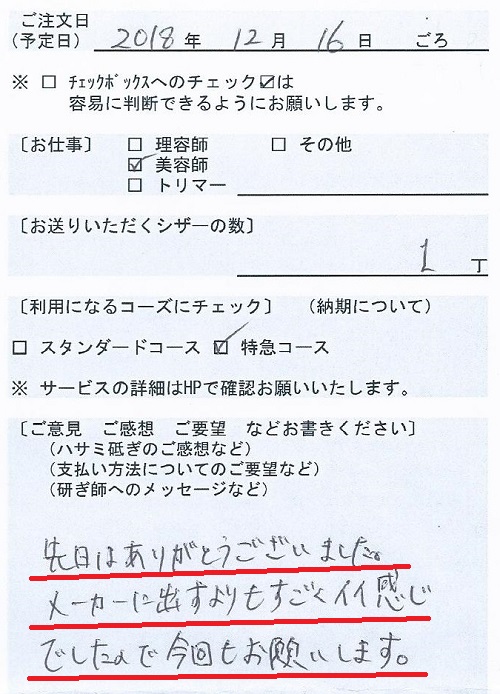 ご注文日
(予定日) 2018 年 12 月 16 日 ごろ
※ □ ﾁｪｯｸﾎﾞｯｸｽへのチェック☑は
容易に判断できるようにお願いします。
〔お仕事〕 □ 理容師 □ その他
☑ 美容師
□ トリマー
〔お送りいただくシザーの数〕
1 丁
〔利用になるコーズにチェック〕 (納期について)
□ スタンダードコース ☑ 特急コース
※ サービスの詳細はHPで確認お願いいたします。
〔ご意見 ご感想 ご要望 などお書きください〕
(ハサミ砥ぎのご感想など)
(支払い方法についてのご要望など)
(研ぎ師へのメッセージなど)
先日はありがとうございました。
メーカーに出すよりもすごくイイ感じ
でしたので今回もお願いします。